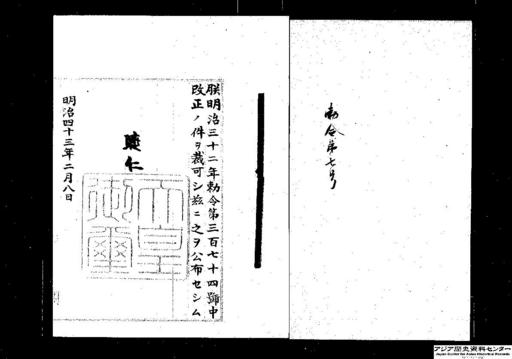 勅令第七号
朕明治三十二年勅令第三百七十四號中
改正ノ件ヲ裁可シ茲ニ之ヲ公布セシム
睦仁
天皇
御璽
明治四十三年二月八日
アジア歴史資料センター
Japan Center for Asian Historical Records